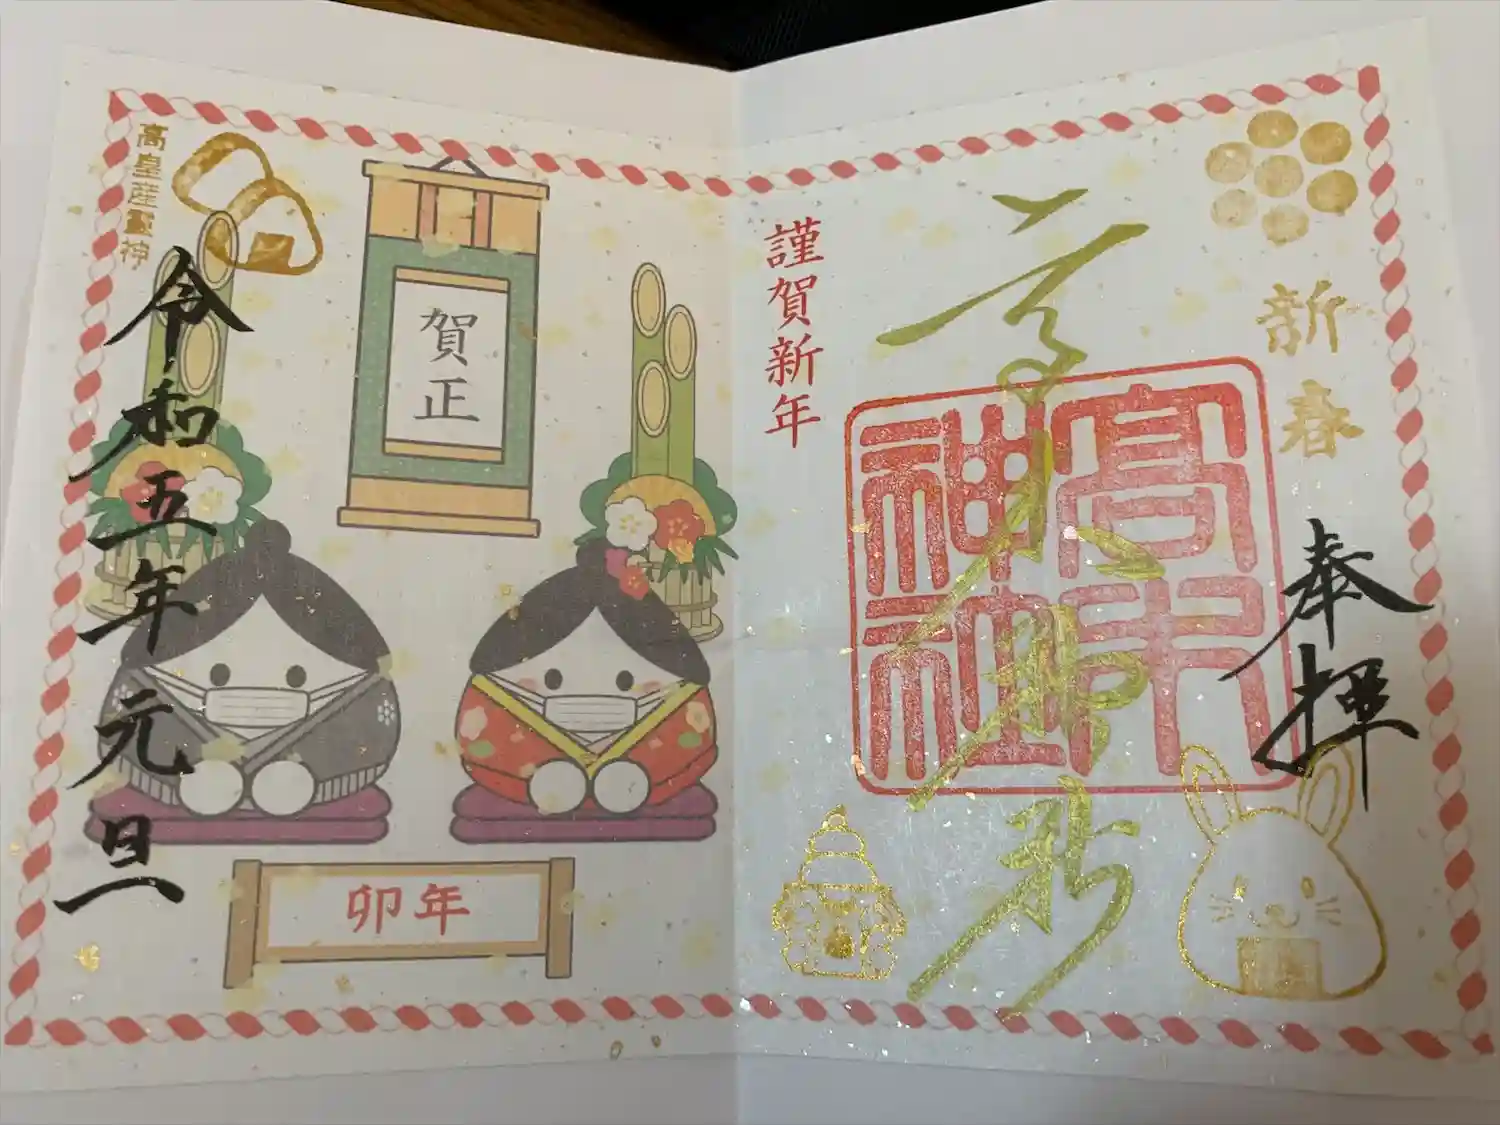 新春
奉拝
高木神社
高木
神社
謹賀新年
賀正
卯年
高皇産靈神
令和五年元旦